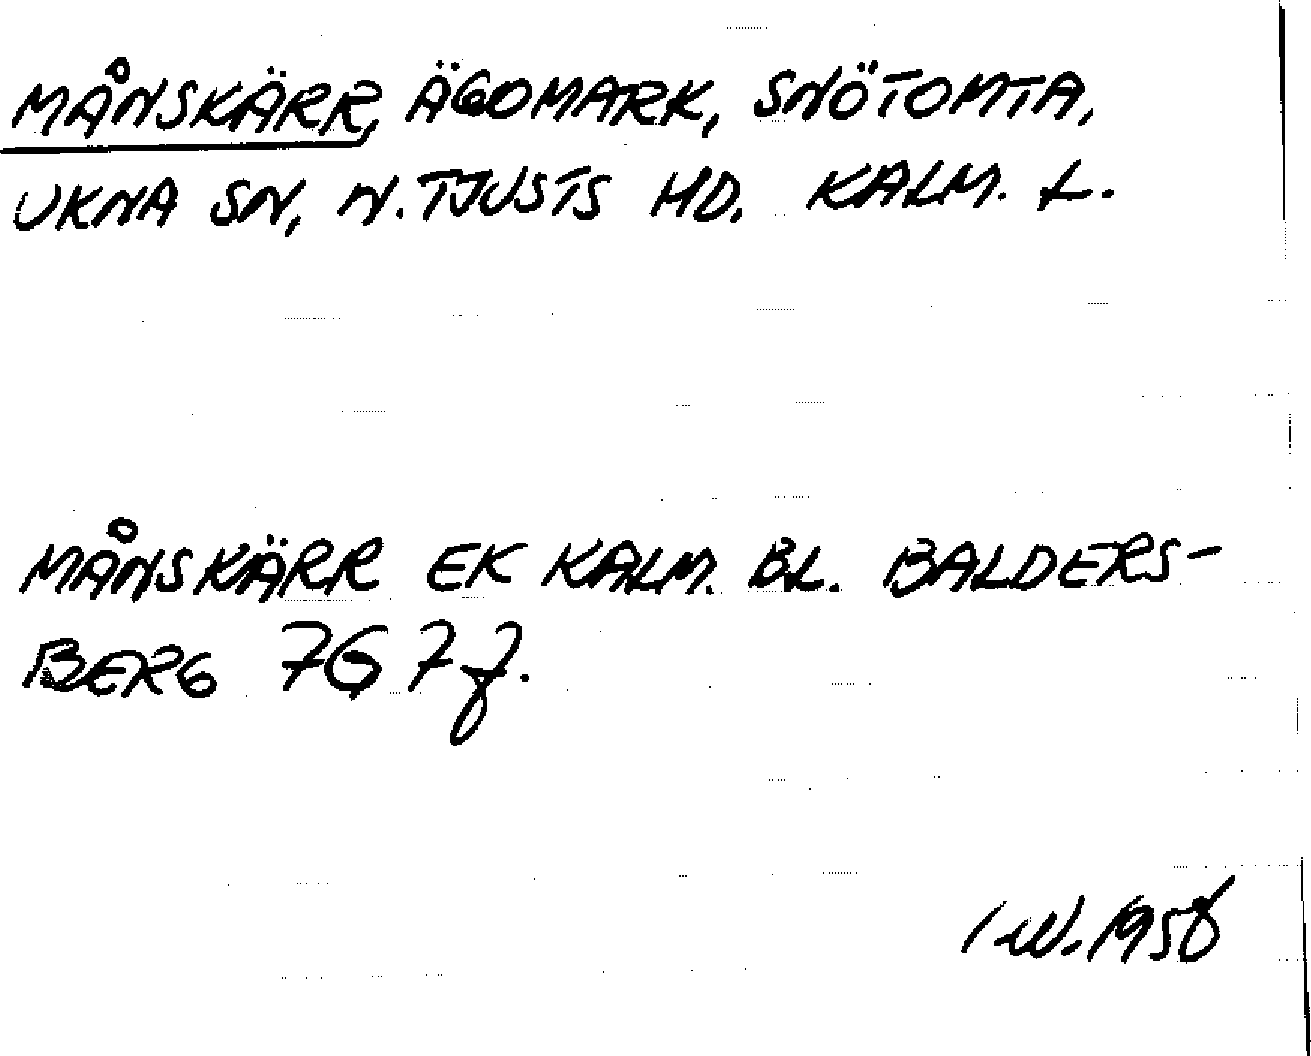 MÅNSKÄRR, ÄGOMARK, SNÖTOMTA,
UKNA SN, N. TJUSTS HD. KALM. L.
MÅNSKÄRR EK KALM. BL. BALDERS-
BERG 7G 7f.
IW. 1958